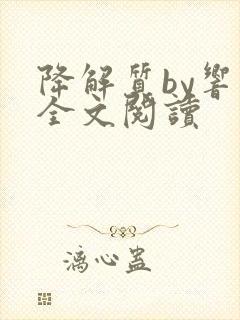 降解質by響
全文閱讀
漓心蠱